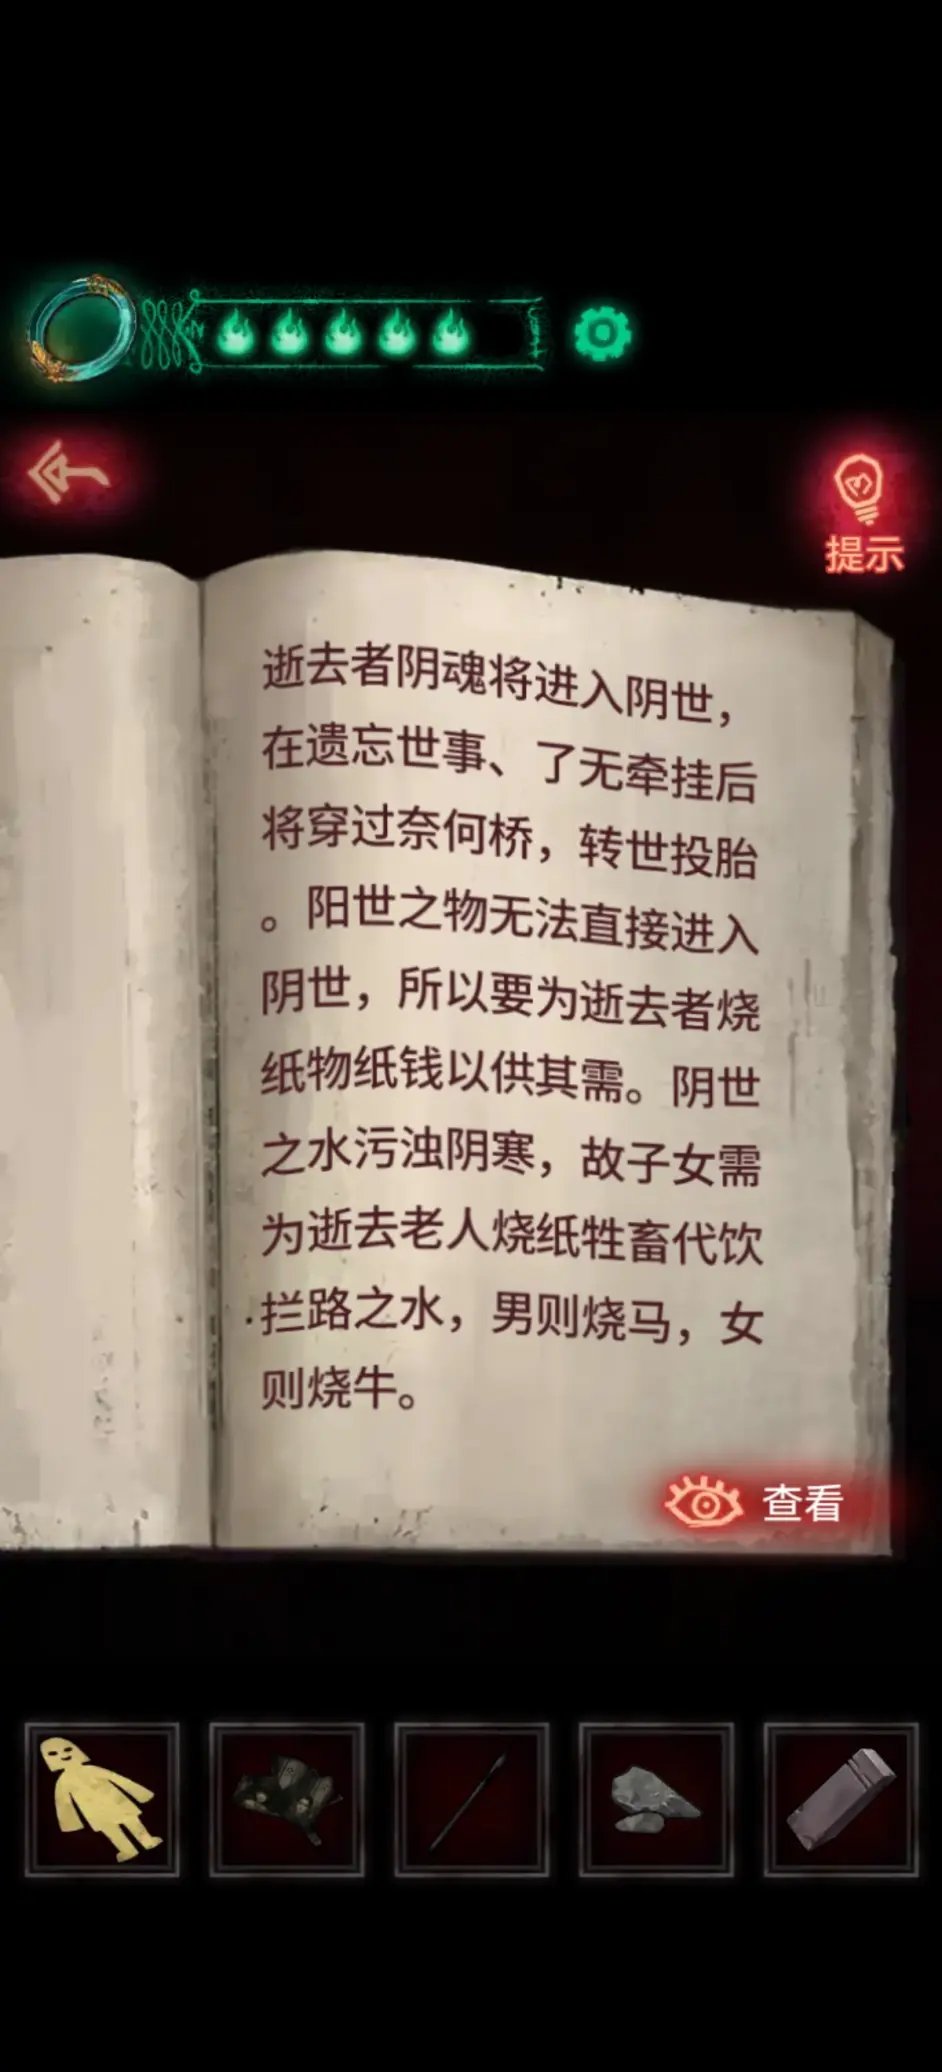 提示
逝去者阴魂将进入阴世，
在遗忘世事、了无牵挂后
将穿过奈何桥，转世投胎
。阳世之物无法直接进入
阴世，所以要为逝去者烧
纸物纸钱以供其需。阴世
之水污浊阴寒，故子女需
为逝去老人烧纸牲畜代饮
拦路之水，男则烧马，女
则烧牛。
查看